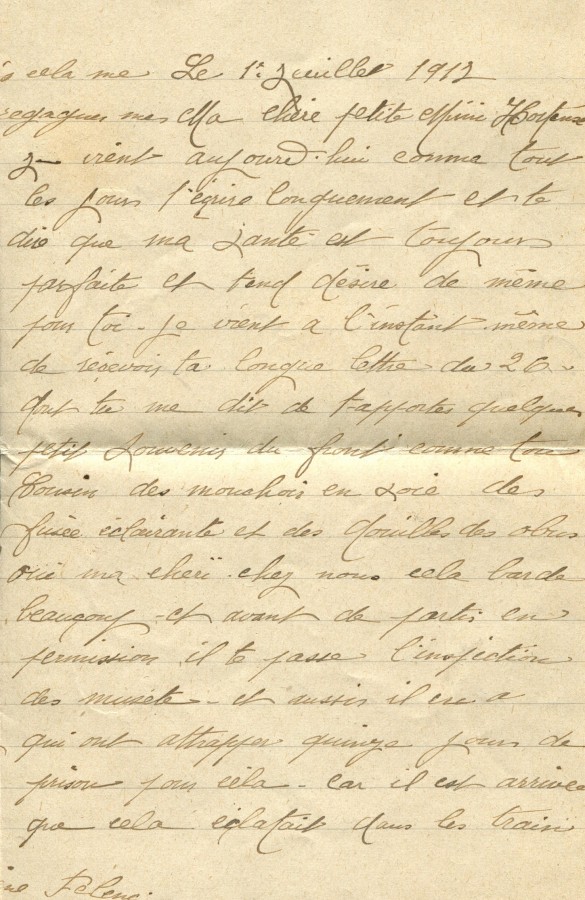 cela me Le 1er Juillet 1917
regagner mes Ma chère petite Mimi Hortense
Je vient aujourd'hui comme tout
les jours t'écrire longuement et te
dire que ma santé est toujours
parfaite et tend désire de même
pour toi - je vient a l'instant même
de recevoir ta longue lettre du 26
dont tu me dit de t'apporter quelques
petit souvenir du front comme ton
Cousin des mouchoir en soie des
fusée éclairante et des douilles des obus
oui ma cheri chez nous cela barde
beaucoup - et avant de partir en
permission il te passe l'inspection
des musete - et aussis il en a
qui ont attrapper quinze jours de
prison pour cela - car il est arrivee
que cela éclatait dans les train
Félenc